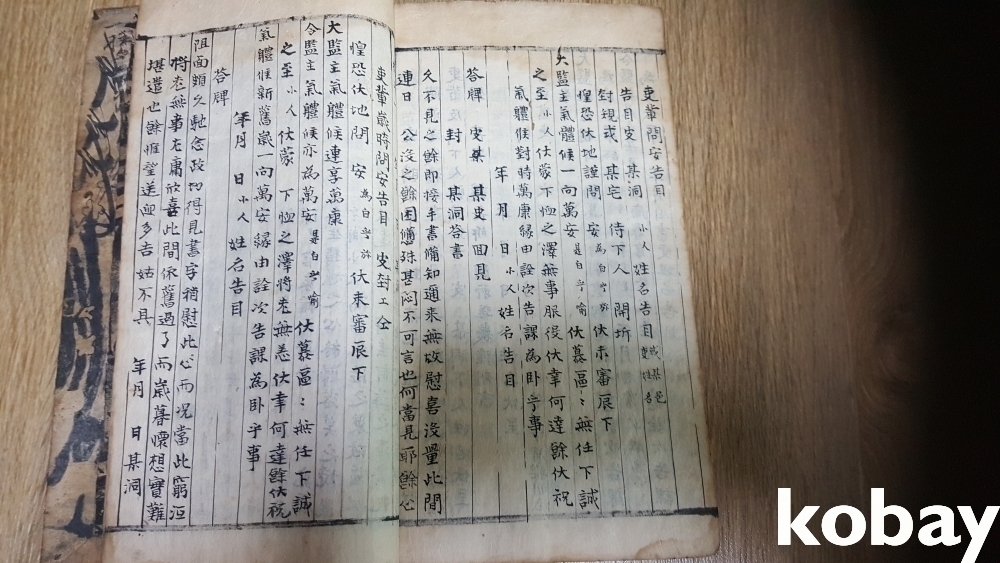 吏輩問安告目
小人 姓名 告目
告目 某洞
封規或 某宅 侍下人 開坼
惶恐伏地謹問 安 伏未審辰下
大監主氣體候一向萬安 伏慕區〻無任下誠
之至 小人伏蒙下恤之澤無事服役伏幸何達餘伏祝
氣體候對時萬康緣由詮次告課為卧乎事
年 月 日 小人 姓名 告目
答牌 某吏 回見
封 某洞答書
久不見之餘即接手書備知邇來無故慰喜沒量此間
連日 公沒之餘困憊殊甚悶不可言也何當見耶餘心
吏輩歲時問安告目
惶恐伏地問 安 伏未審辰下
大監主氣體候連享萬康
令監主氣體候亦為萬安 伏慕區〻無任下誠
之至 小人 伏蒙 下恤之澤將老無恙伏幸何達餘伏祝
氣體候新舊歲一向萬安緣由詮次告課為卧乎事
年月 日 小人 姓名告目
答牌
阻面頗久馳念政切得見書字稍慰此心而況當此窮沍
將老無事尤庸欣喜此間依舊過了而歲暮懷想實難
堪遣也餘惟望送迎多吉姑不具
年月 日 某洞
kobay